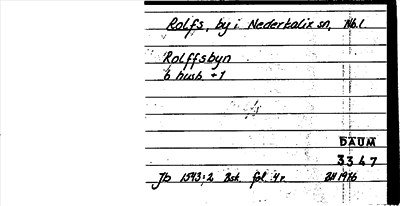 Rolfs, by i Nederkalix sn, Nb.l.
Rolffsbyn
6 husb. + 1
DAUM
3347
Jb 1543:2 Bsk. fol 4r.